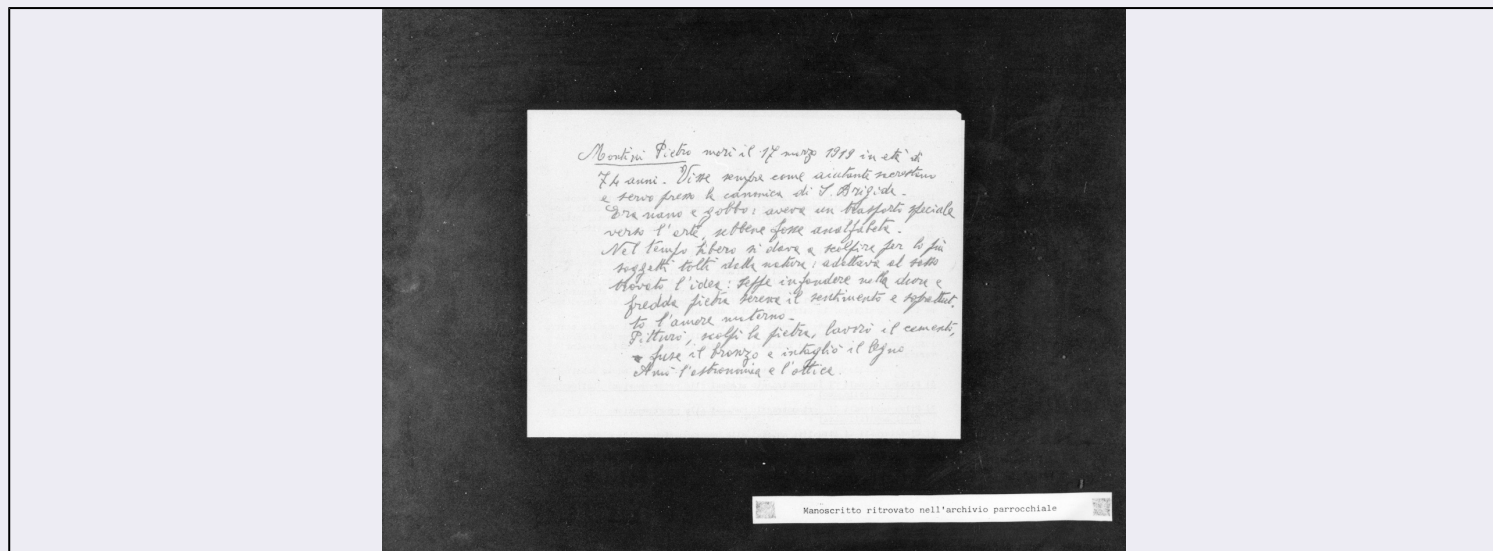 Montini Pietro morì il 17 marzo 1919 in età di
74 anni. Visse sempre come aiutante sacrestano
e servo presso la canonica di S. Brigida.
Era nano e gobbo: aveva un trasporto speciale
verso l'arte, sebbene fosse analfabeta.
Nel tempo libero si dava a scolpire per lo più
soggetti tolti dalla natura: adattava al sasso
trovato l'idea: seppe infondere nella dura e
fredda pietra serena il sentimento e soprattut-
to l'amore materno.
Pitturò, scolpì la pietra, lavorò il cemento,
fuse il bronzo e intagliò il legno
Amò l'astronomia e l'ottica.
Manoscritto ritrovato nell'archivio parrocchiale